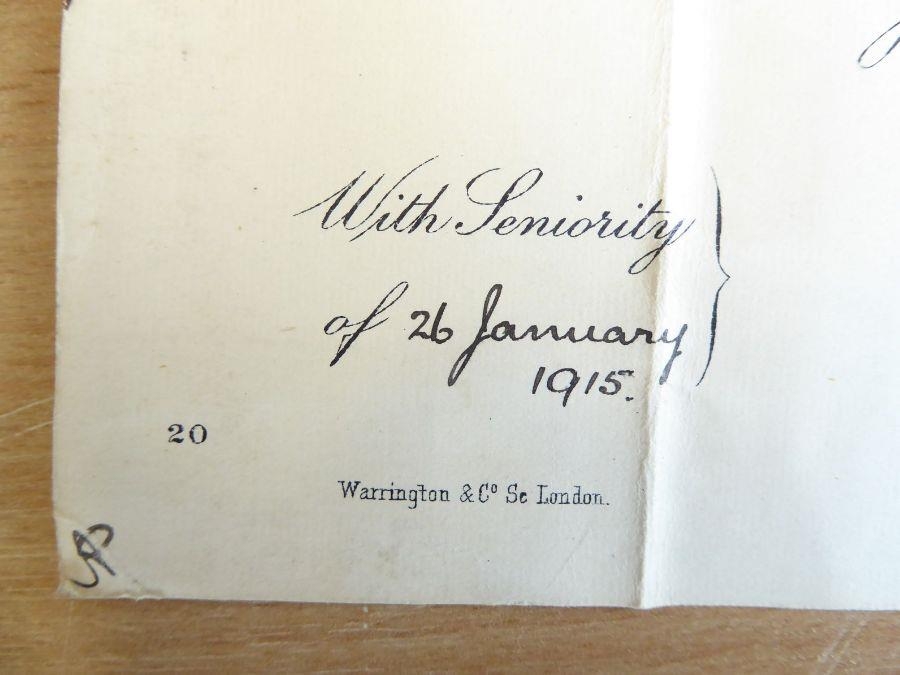 With Seniority
of 26 January
1915.
20
Warrington & Cº Sc London.